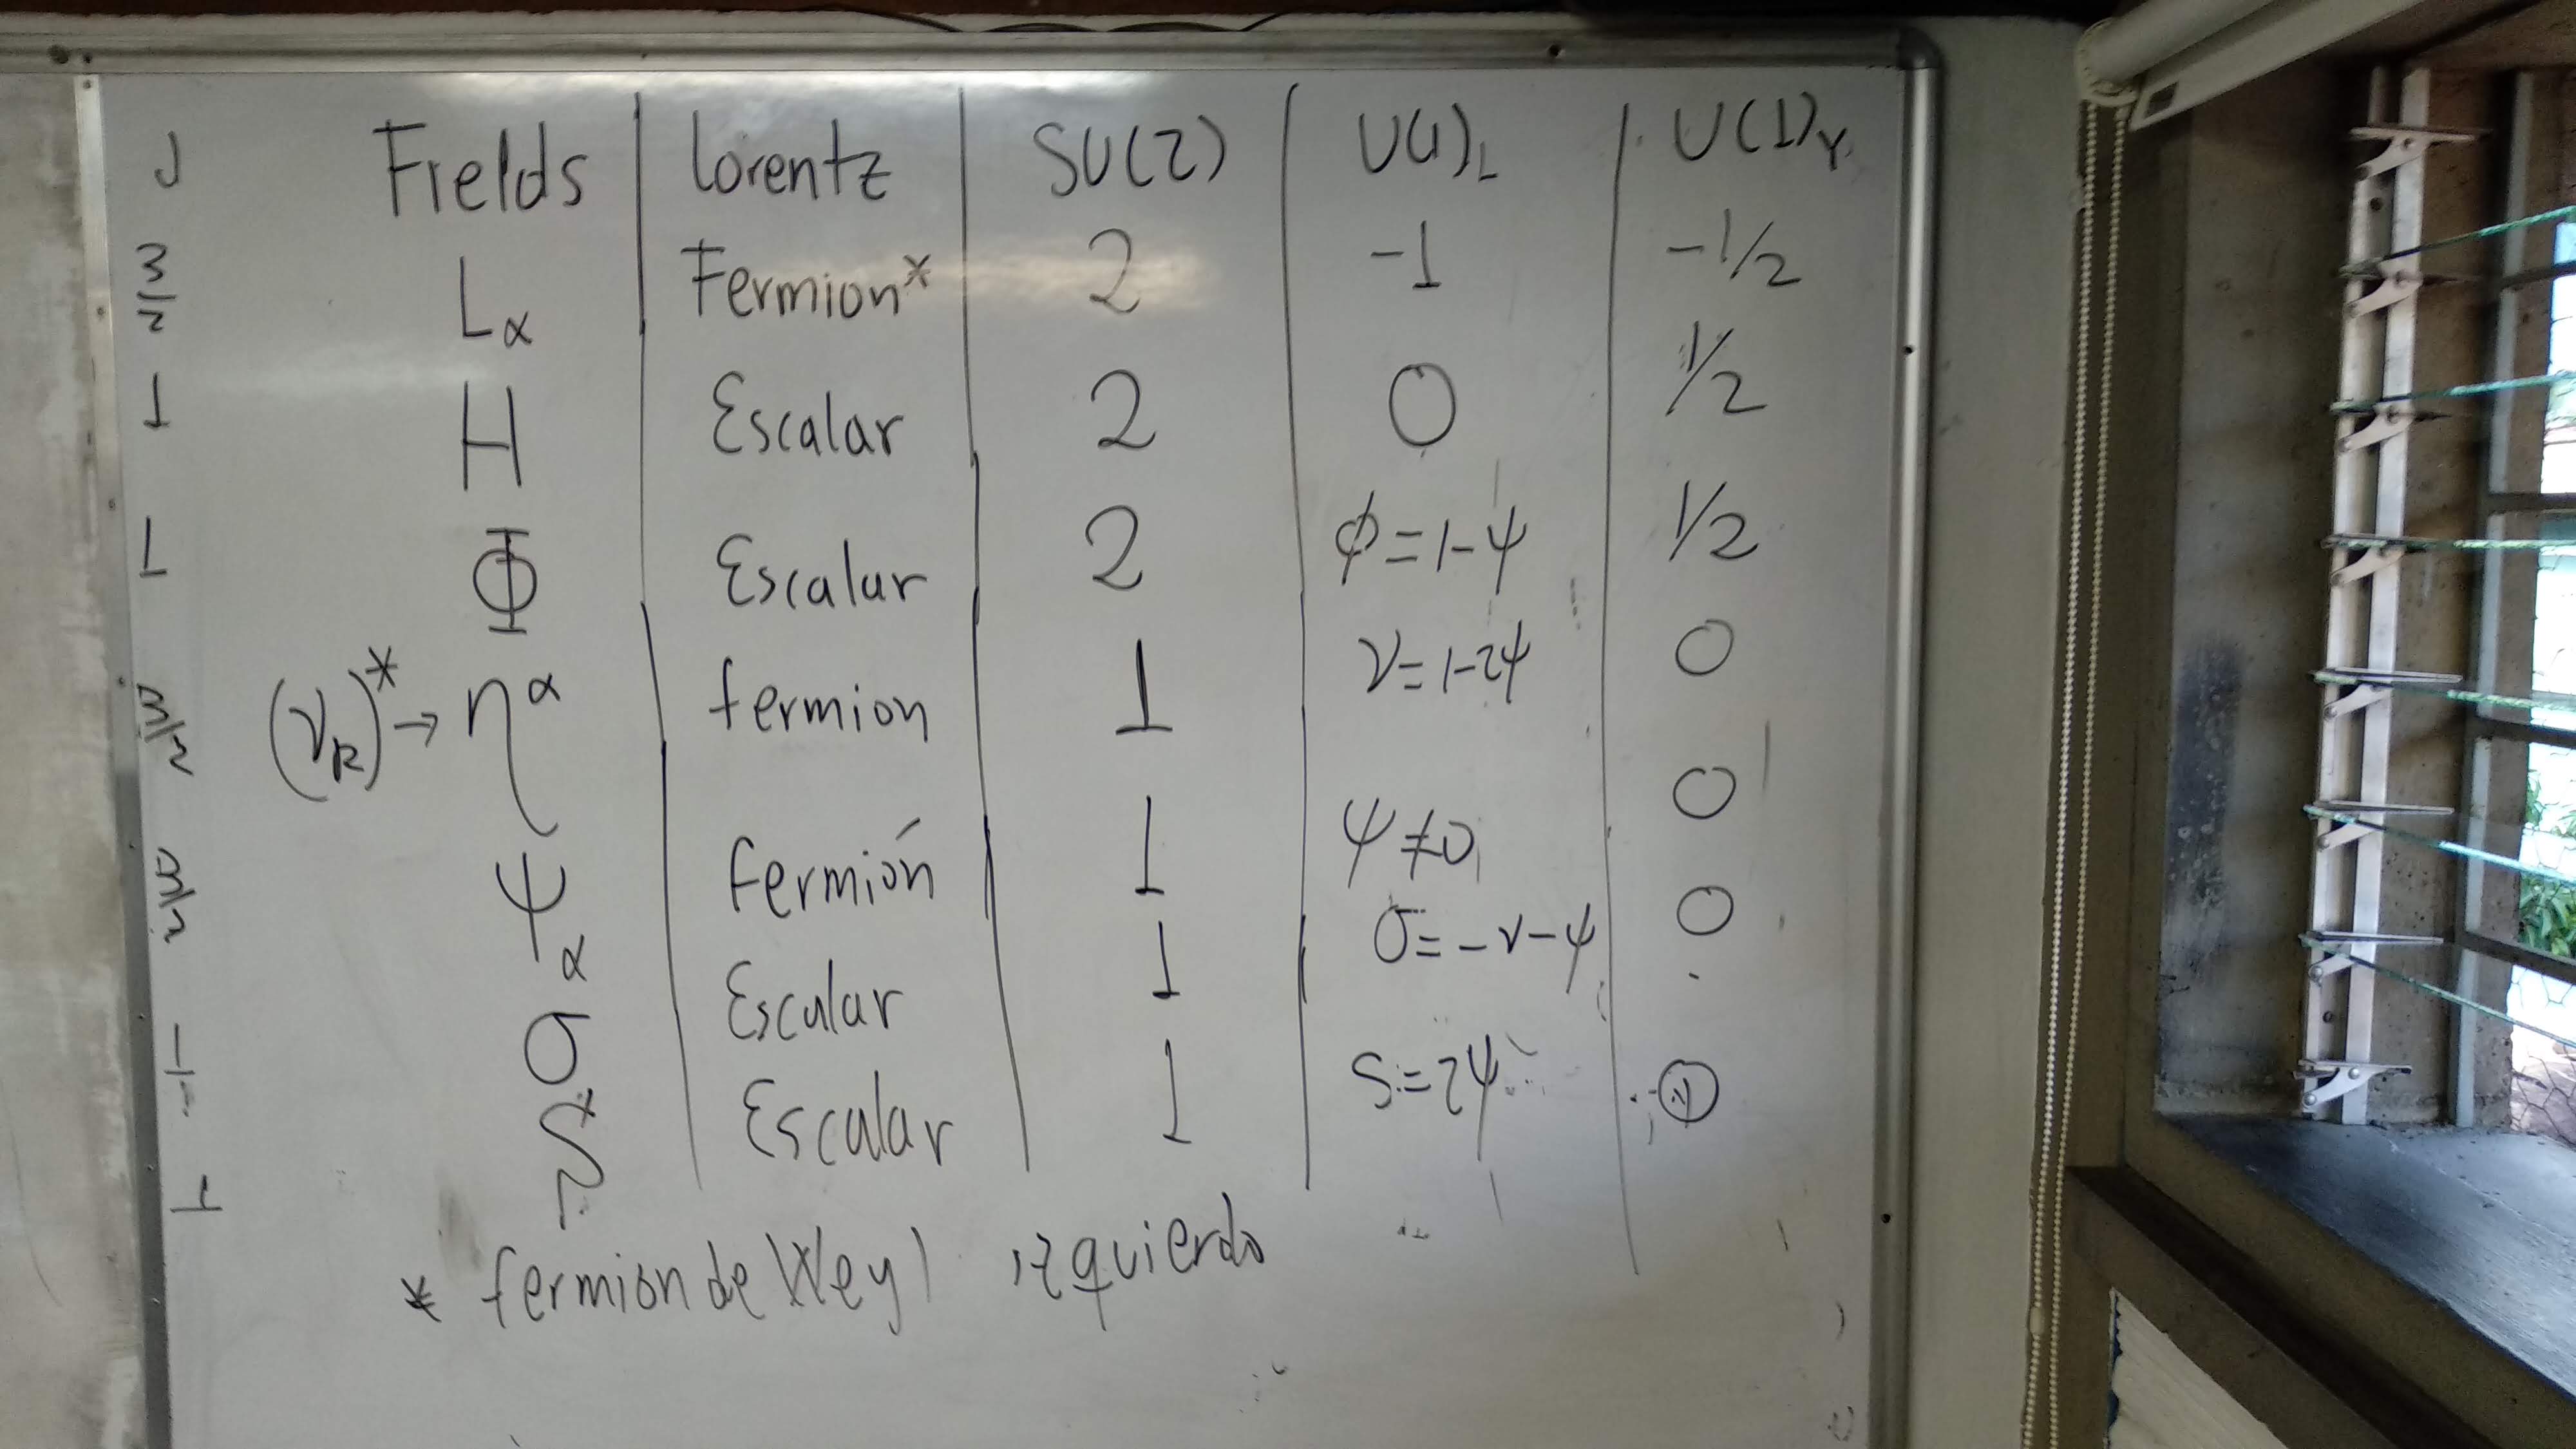 d Fields Lorentz SU(2) U(1)L U(1)Y
3/2 Lα Fermion* 2 -1 -1/2
1 H Escalar 2 0 1/2
1 Φ Escalar 2 φ=1-ψ 1/2
3/2 (νR)* → η^α fermion 1 ν=1-2ψ 0
3/2 ψα fermión 1 ψ≠0 0
1 σ Escalar 1 σ=-ν-ψ 0
1 S Escalar 1 S=2ψ 0
* fermion de Weyl izquierdo